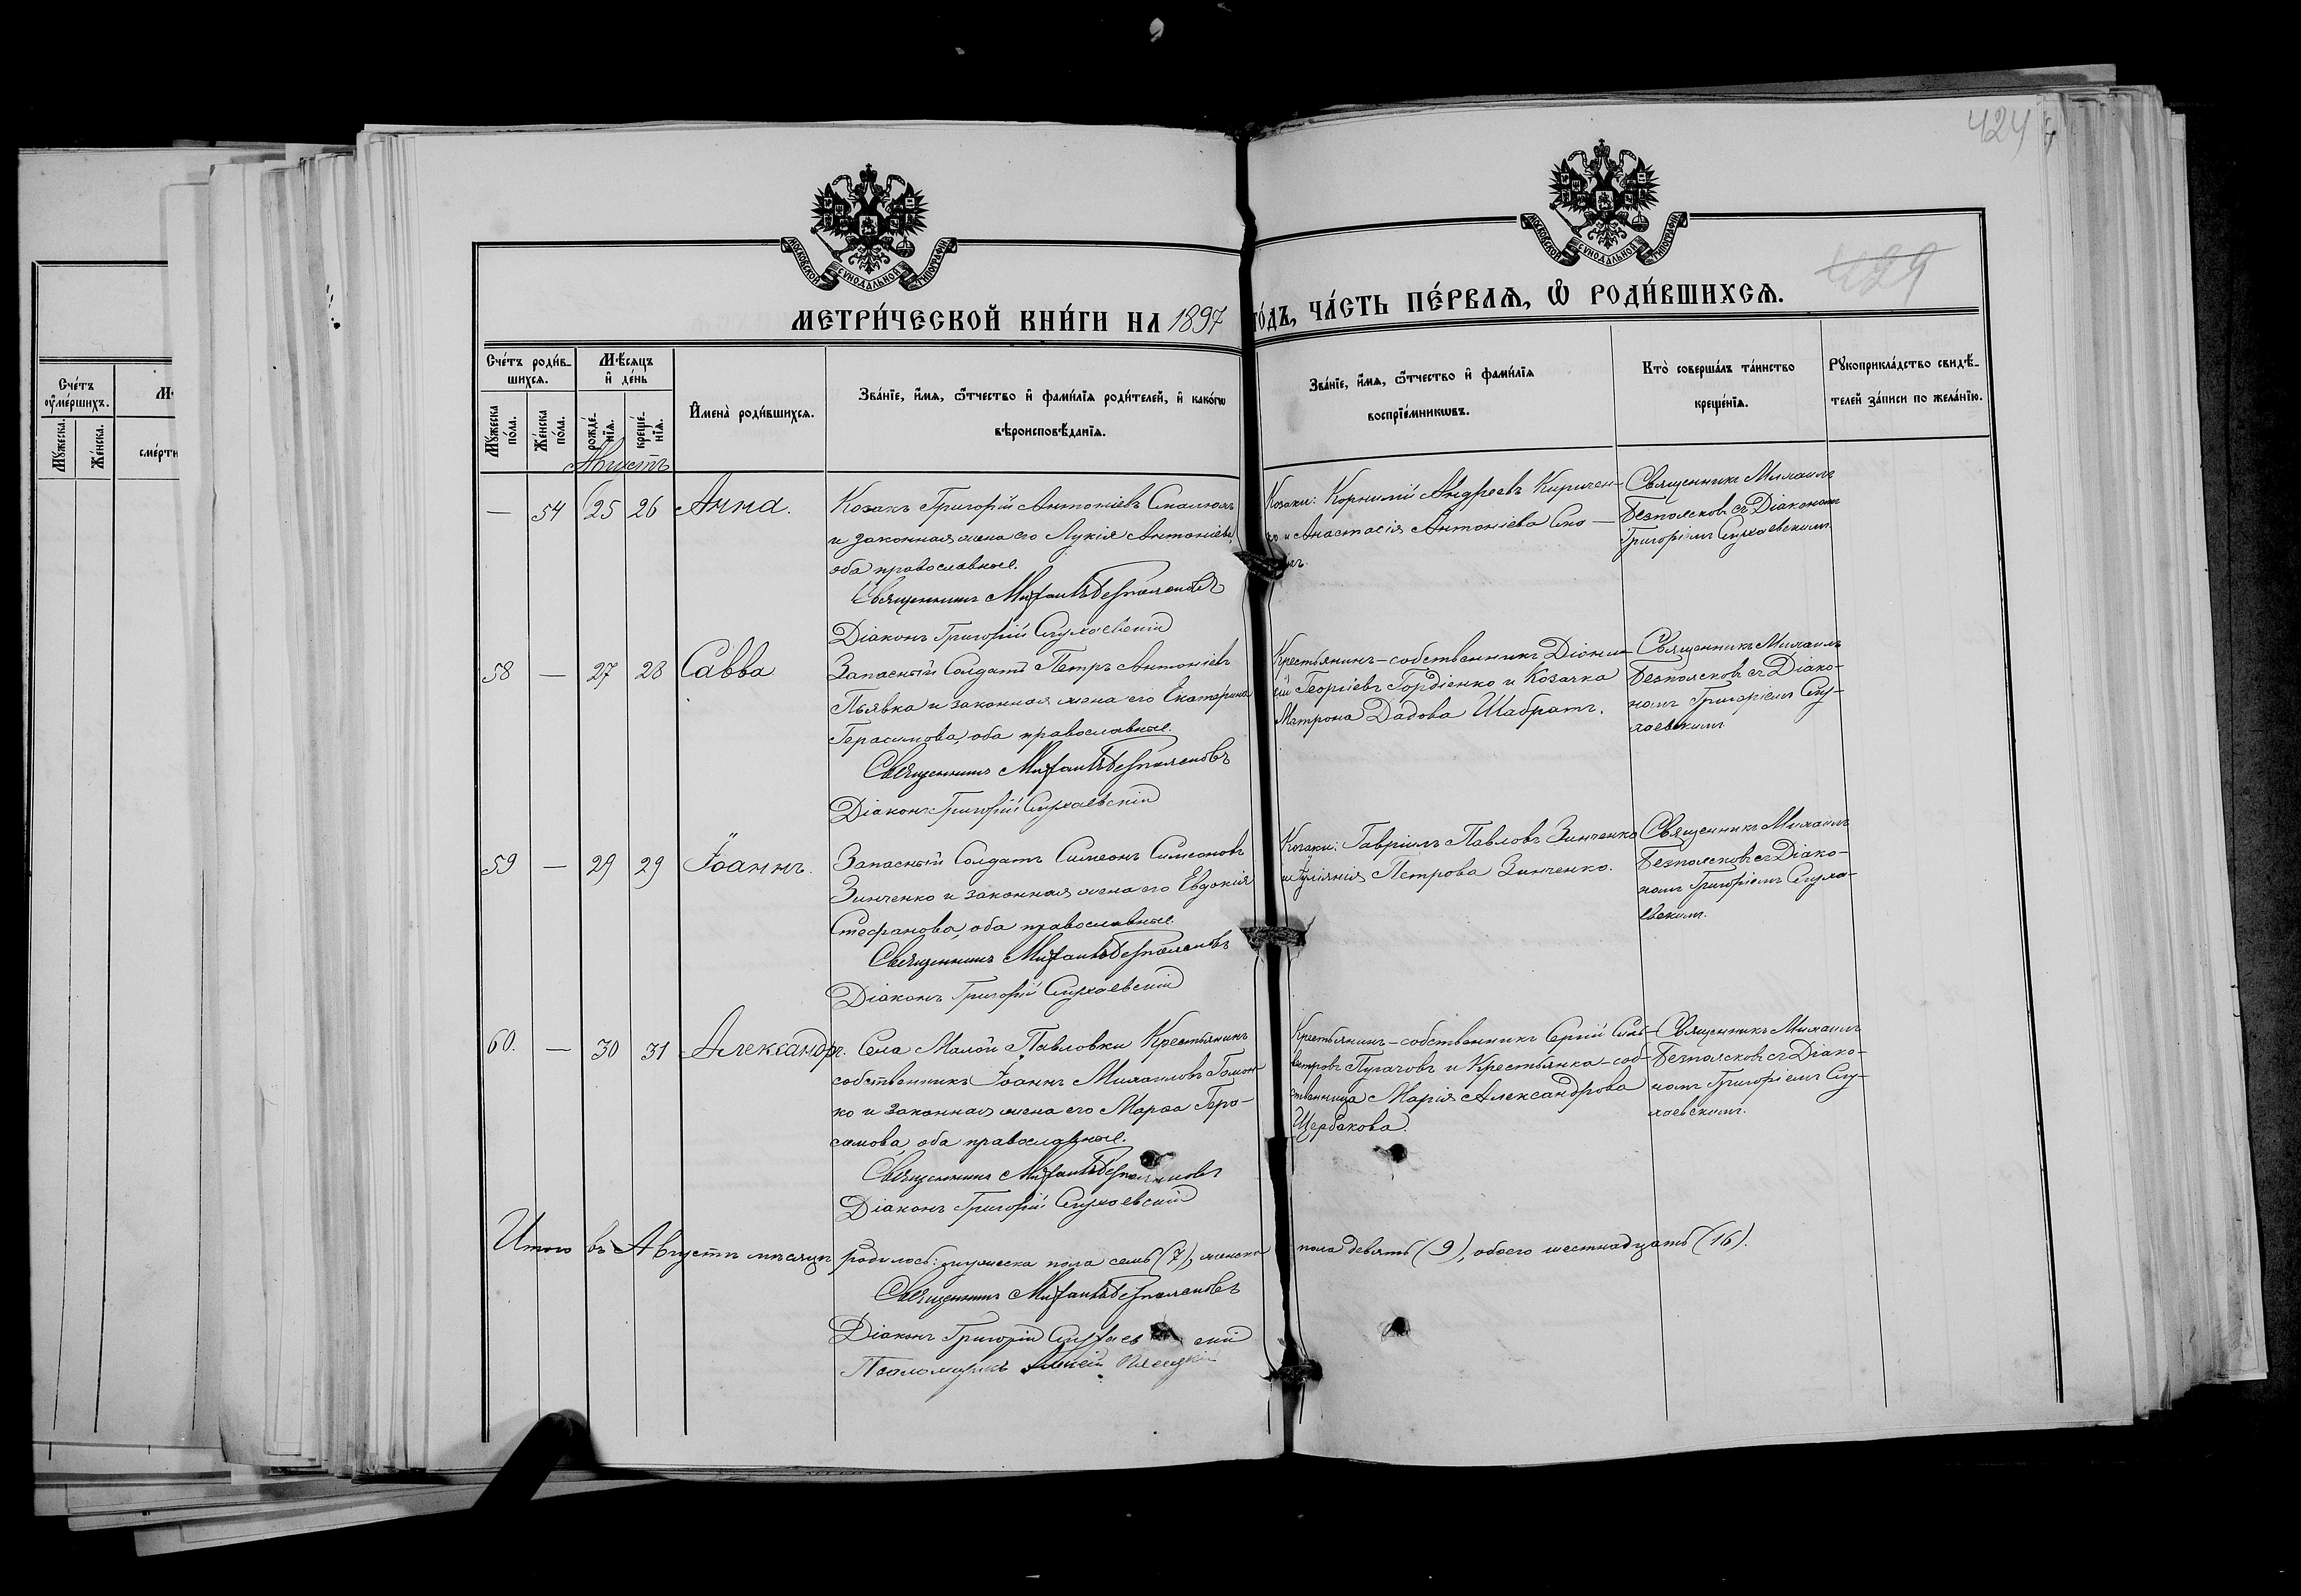 424
МОСКОВСКОЙ СѴНОДАЛЬНОЙ ТИПОГРАФІИ
МОСКОВСКОЙ СѴНОДАЛЬНОЙ ТИПОГРАФІИ
429
МЕТРИ́ЧЕСКОЙ КНИ́ГИ НА 1897 ГО́ДЪ, ЧА́СТЬ ПЕ́РВАѦ, Ѡ҆ РОДИ́ВШИХСѦ.
Сче́тъ ᲂу҆ме́ршихъ.
Мꙋ́жеска.
Же́нска.
сме́рти
Сче́тъ роди́в-
шихсѧ.
Мꙋ́жеска по́ла.
Же́нска по́ла.
Мѣ́сѧцъ
и҆ де́нь
рожде́-
нїѧ.
креще́-
нїѧ.
И҆мена̀ роди́вшихсѧ.
Зва́нїе, и҆́мѧ, ѻ҆́тчество и҆ фами́лїѧ роди́телей, и҆ како́гѡ
вѣроисповѣ́данїѧ.
Зва́нїе, и҆́мѧ, ѻ҆́тчество и҆ фами́лїѧ
воспрїе́мникѡвъ.
Кто̀ соверша́лъ та́инство
креще́нїѧ.
Рꙋкоприкла́дство свидѣ́-
телей за́писи по жела́нїю.
Августъ
— 54 25 26 Анна.
Козакъ Григорій Антоніевъ
и законная жена его Лукія Антоніева,
оба православные.
Священникъ Михаилъ Безполсковъ
Діаконъ Григорій Слухаевскій
Козаки: Корнилій Андреевъ Киричен-
ко и Анастасія Антоніева Ско-
Священникъ Михаилъ
Безполсковъ съ Діакономъ
Григоріемъ Слухаевскимъ
58 — 27 28 Савва
Запасный Солдатъ Петръ Антоніевъ
Пьявка и законная жена его Екатерина
Герасимова, оба православные.
Священникъ Михаилъ Безполсковъ
Діаконъ Григорій Слухаевскій
Крестьянинъ-собственникъ Діони-
сій Георгіевъ Гордіенко и Козачка
Матрона Дадова Шабратъ.
Священникъ Михаилъ
Безполсковъ съ Діако-
номъ Григоріемъ Слу-
хаевскимъ
59 — 29 29 Іоаннъ.
Запасный Солдатъ Симеонъ Симеоновъ
Зинченко и законная жена его Евдокія
Стефанова, оба православные.
Священникъ Михаилъ Безполсковъ
Діаконъ Григорій Слухаевскій
Козаки: Гавріилъ Павловъ Зинченко
и Іуліянія Петрова Зинченко.
Священникъ Михаилъ
Безполсковъ съ Діако-
номъ Григоріемъ Слуха-
евскимъ.
60. — 30 31 Александръ.
Села Малой Павловки Крестьянинъ
собственникъ Іоаннъ Михаиловъ Гомон-
ко и законная жена его Марѳа Гера-
симова, оба православные.
Священникъ Михаилъ Безполсковъ
Діаконъ Григорій Слухаевскій
Крестьянинъ-собственникъ Сергій Силь-
вестровъ Пугачовъ и Крестьянка-соб-
ственница Марія Александрова
Щербакова.
Священникъ Михаилъ
Безполсковъ съ Діако-
номъ Григоріемъ Слу-
хаевскимъ.
Итого въ Августѣ мѣсяцѣ родилось: мужеска пола семь (7), женска пола девять (9), обоего шестнадцать (16).
Священникъ Михаилъ Безполсковъ
Діаконъ Григорій Слухаевскій
Псаломщикъ